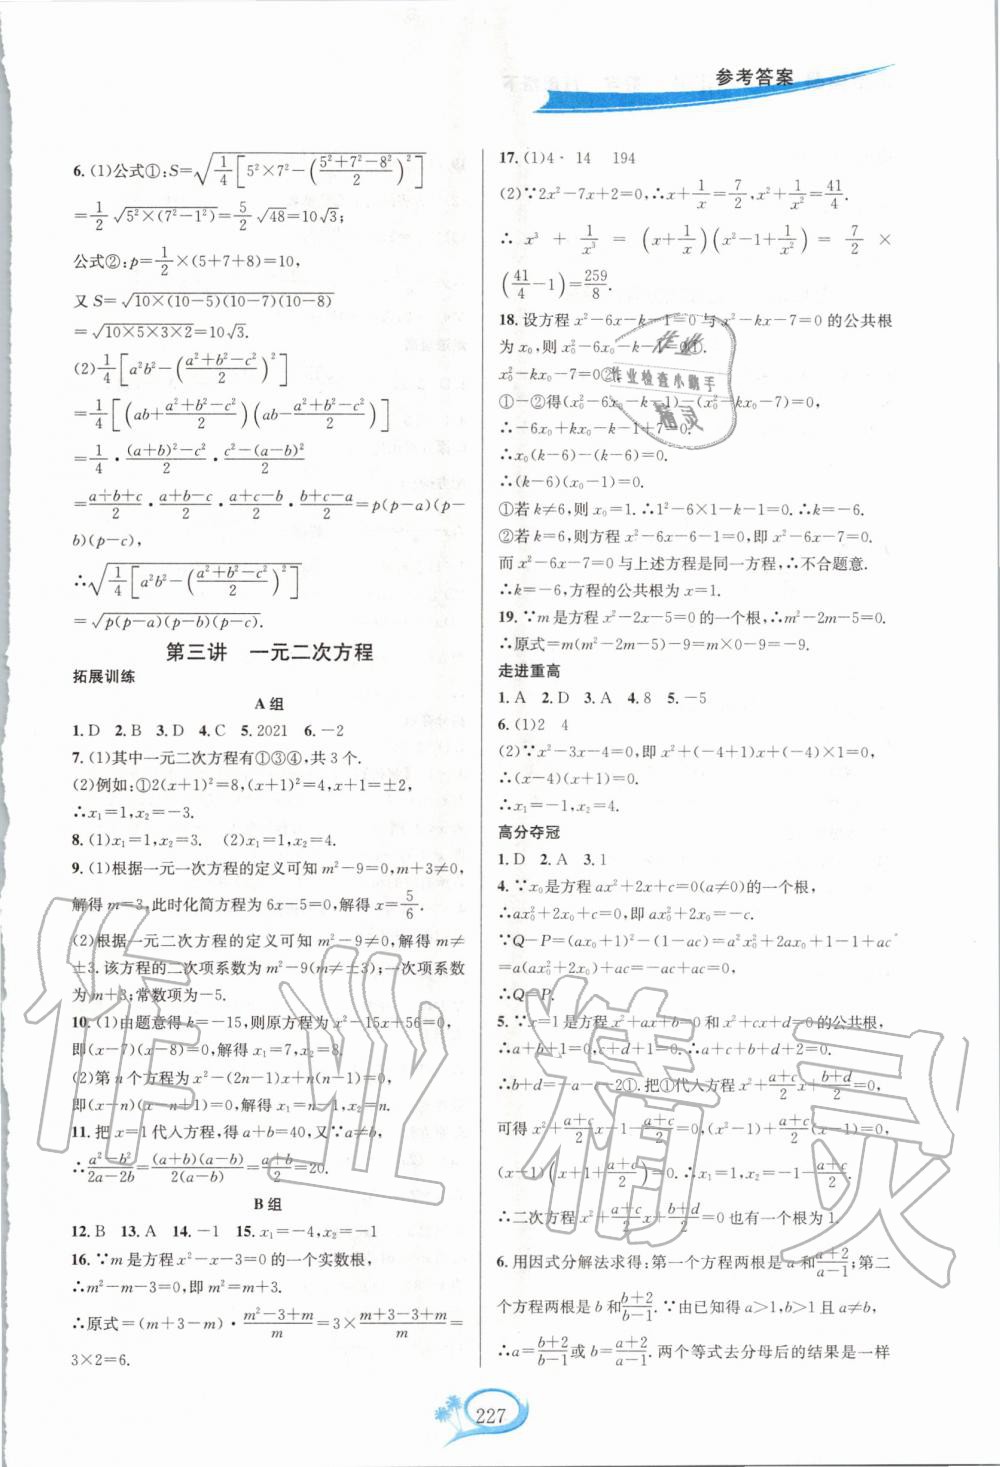 参考答案
6. (1)公式①:S=√(1/4[5²×7²-((5²+7²-8²)/2)²])
=1/2 √(5²×(7²-1²))=5/2 √48=10√3;
公式②:p=1/2×(5+7+8)=10,
又 S=√(10×(10-5)(10-7)(10-8))
=√(10×5×3×2)=10√3.
(2)1/4[a²b²-((a²+b²-c²)/2)²]
=1/4[(ab+(a²+b²-c²)/2)(ab-(a²+b²-c²)/2)]
=1/4·((a+b)²-c²)/2·(c²-(a-b)²)/2
=(a+b+c)/2·(a+b-c)/2·(a+c-b)/2·(b+c-a)/2=p(p-a)(p-
b)(p-c),
∴√(1/4[a²b²-((a²+b²-c²)/2)²])
=√(p(p-a)(p-b)(p-c)).
第三讲 一元二次方程
拓展训练
A组
1. D 2. B 3. D 4. C 5. 2021 6. -2
7. (1)其中一元二次方程有①③④,共 3 个.
(2)例如:①2(x+1)²=8,(x+1)²=4,x+1=±2,
∴x₁=1,x₂=-3.
8. (1)x₁=1,x₂=3. (2)x₁=1,x₂=4.
9. (1)根据一元一次方程的定义可知 m²-9=0,m+3≠0,
解得 m=3,此时化简方程为 6x-5=0,解得 x=5/6.
(2)根据一元二次方程的定义可知 m²-9≠0,解得 m≠
±3.该方程的二次项系数为 m²-9(m≠±3);一次项系数
为 m+3;常数项为-5.
10. (1)由题意得 k=-15,则原方程为 x²-15x+56=0,
即(x-7)(x-8)=0,解得 x₁=7,x₂=8.
(2)第 n 个方程为 x²-(2n-1)x+n(n-1)=0,
即(x-n)(x-n+1)=0,解得 x₁=n-1,x₂=n.
11. 把 x=1 代人方程,得 a+b=40,又∵a≠b,
∴(a²-b²)/(2a-2b)=(a+b)(a-b)/(2(a-b))=(a+b)/2=20.
B组
12. B 13. A 14. -1 15. x₁=-4,x₂=-1
16. ∵m 是方程 x²-x-3=0 的一个实数根,
∴m²-m-3=0,即 m²=m+3.
∴原式=(m+3-m)·(m²-3+m)/m=3×(m+3-3+m)/m=
3×2=6.
17. (1)4· 14 194
(2)∵2x²-7x+2=0,∴x+1/x=7/2,x²+1/x²=41/4.
∴ x³ + 1/x³ = (x+1/x)(x²-1+1/x²) = 7/2 ×
(41/4-1)=259/8.
18. 设方程 x²-6x-k-1=0 与 x²-kx-7=0 的公共根
为 x₀,则 x₀²-6x₀-k-1=0①.
x₀²-kx₀-7=0②,
①-②得(x₀²-6x₀-k-1)-(x₀²-kx₀-7)=0,
∴-6x₀+kx₀-k-1+7=0.
∴x₀(k-6)-(k-6)=0.
∴(k-6)(x₀-1)=0.
①若 k≠6,则 x₀=1.∴1²-6×1-k-1=0.∴k=-6.
②若 k=6,则方程 x²-6x-6-1=0,即 x²-6x-7=0.
而 x²-6x-7=0 与上述方程是同一方程,∴不合题意.
∴k=-6,方程的公共根为 x=1.
19. ∵m 是方程 x²-2x-5=0 的一个根,∴m²-2m-5=0.
∴原式=m(m²-2m-5)-9=m×0-9=-9.
走进重高
1. A 2. D 3. A 4. 8 5. -5
6. (1)2 4
(2)∵x²-3x-4=0,即 x²+(-4+1)x+(-4)×1=0,
∴(x-4)(x+1)=0.
∴x₁=-1,x₂=4.
高分夺冠
1. D 2. A 3. 1
4. ∵x₀是方程 ax²+2x+c=0(a≠0)的一个根,
∴ax₀²+2x₀+c=0,即 ax₀²+2x₀=-c.
∵Q-P=(ax₀+1)²-(1-ac)=a²x₀²+2ax₀+1-1+ac
=a(ax₀²+2x₀)+ac=-ac+ac=0,
∴Q=P.
5. ∵x=1 是方程 x²+ax+b=0 和 x²+cx+d=0 的公共根,
∴a+b+1=0,c+d+1=0.
∴b+d=-a-c-2①.把①代人方程 x²+(a+c)/2 x+(b+d)/2=0,
可得 x²+(a+c)/2 x-1-(a+c)/2=0,(x²-1)+(a+c)/2(x-1)=0,
(x-1)(x+1+(a+c)/2)=0,∴x₁=1,x₂=-1-(a+c)/2.
∴二次方程 x²+(a+c)/2 x+(b+d)/2=0 也有一个根为 1.
6. 用因式分解法求得:第一个方程两根是 a 和(a+2)/(a-1),第二
个方程两根是 b 和(b+2)/(b-1).∵由已知得 a>1,b>1 且 a≠b,
∴a=(b+2)/(b-1)或 b=(a+2)/(a-1).两个等式去分母后的结果是一样
227
作业
作业检查小助手
精灵
作业精灵